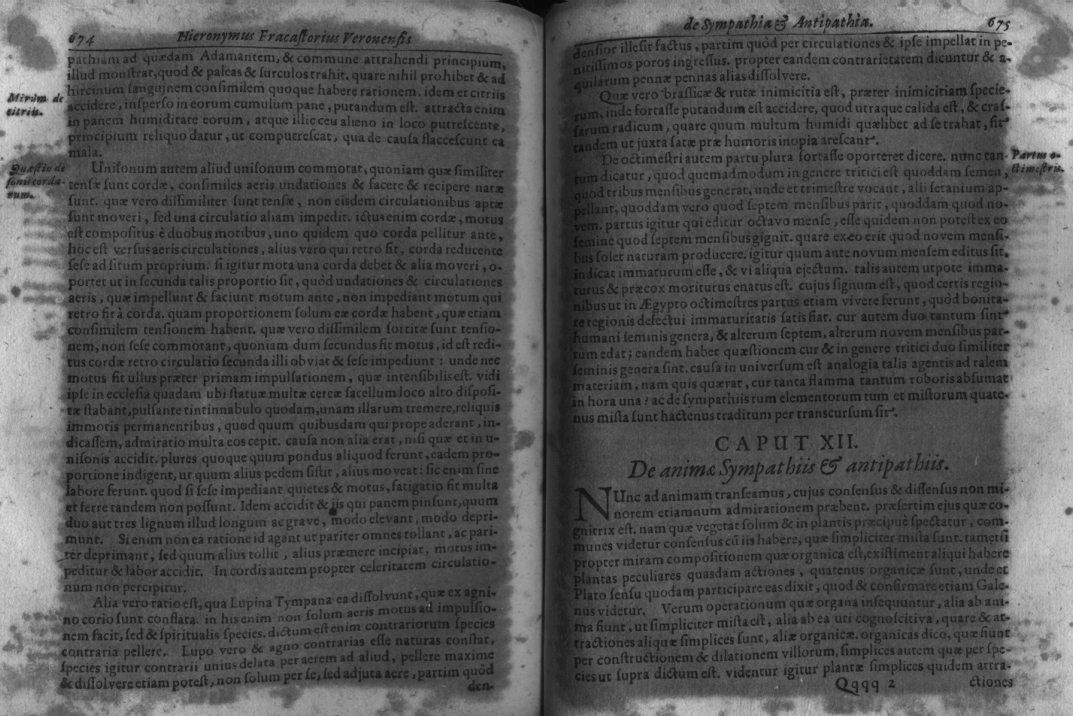 674 Hieronymus Fracastorius Veronensis
pathiam ad quædam Adamantem, & commune attrahendi principium,
illud monstrat, quod & paleas & surculos trahit, quare nihil prohibet & ad
hircinum sanguinem consimilem quoque habere rationem. idem et citriis
Mirum de
citriis.
accidere, insperso in eorum cumulum pane, putandum est. attracta enim
in panem humiditate eorum, atque illic ceu alieno in loco putrescente,
principium reliquo datur, ut computrescat, qua de causa flaccescunt ca
mala.
Quæstio de
sono corda-
rum.
Unisonum autem aliud unisonum commotat, quoniam quæ similiter
tensæ sunt cordæ, consimiles aeris undationes & facere & recipere natæ
sunt. quæ vero dissimiliter sunt tensæ, non eisdem circulationibus aptæ
sunt moveri, sed una circulatio aliam impedit. ictus enim cordæ, motus
est compositus è duobus motibus, uno quidem quo corda pellitur ante,
hoc est versus aeris circulationes, alius vero qui retro fit, corda reducente
sese ad situm proprium. si igitur mota una corda debet & alia moveri, o-
portet ut in secunda talis proportio sit, quòd undationes & circulationes
aeris, quæ impellunt & faciunt motum ante, non impediant motum qui
retro fit à corda. quam proportionem solum eæ cordæ habent, quæ etiam
consimilem tensionem habent. quæ vero dissimilem sortitæ sunt tensio-
nem, non sese commotant, quoniam dum secundus fit motus, id est redi-
tus cordæ retro circulatio secunda illi obviat & sese impediunt : unde nec
motus fit ullus præter primam impulsationem, quæ insensibilis est. vidi
ipse in ecclesia quadam ubi statuæ multæ cereæ sacellum loco alto disposi-
tæ stabant, pulsante tintinnabulo quodam, unam illarum tremere, reliquis
immotis permanentibus, quod quum quibusdam qui prope aderant, in-
dicassem, admiratio multa eos cepit. causa non alia erat, nisi quæ et in u-
nisonis accidit. plures quoque quum pondus aliquod ferunt, eadem pro-
portione indigent, ut quum alius pedem sistit, alius moveat : sic enim sine
labore ferunt. quod si sese impediant quietes & motus, fatigatio fit multa
et ferre tandem non possunt. Idem accidit & iis qui panem pinsunt, quum
duo aut tres lignum illud longum ac grave, modo elevant, modo depri-
munt. Si enim non ea ratione id agant ut pariter omnes tollant, ac pari-
ter deprimant, sed quum alius tollit, alius præmere incipiat, motus im-
peditur & labor accidit. In cordis autem propter celeritatem circulatio-
num non percipitur.
Alia vero ratio est, qua Lupina Tympana ea dissolvunt, quæ ex agni-
no corio sunt conflata. in his enim non solum aeris motus ad impulsio-
nem facit, sed & spiritualis species. dictum est enim contrariorum species
contraria pellere. Lupo vero & agno contrarias esse naturas constat,
species igitur contrarii unius delata per aerem ad aliud, pellere maxime
& dissolvere etiam potest, non solum per se, sed adjuta aere, partim quòd
den-
de Sympathia & Antipathia. 675
densior ille sit factus, partim quòd per circulationes & ipse impellat in pe-
nitissimos poros ingressus. propter eandem contrarietatem dicuntur & a-
quilarum pennæ pennas alias dissolvere.
Quæ vero brassicæ & rutæ inimicitia est, præter inimicitiam specie-
rum, inde fortasse putandum est accidere, quod utraque calida est, & cras-
sarum radicum, quare quum multum humidi quælibet ad se trahat, fit
tandem ut juxta satæ præ humoris inopia arescant.
De octimestri autem partu plura fortasse oporteret dicere. nunc tan-
Partus o-
ctimestris.
tum dicatur, quod quemadmodum in genere tritici est quoddam semen,
quod tribus mensibus generat, unde et trimestre vocant, alii setanium ap-
pellant, quoddam vero quod septem mensibus parit, quoddam quod no-
vem. partus igitur qui editur octavo mense, esse quidem non potest ex eo
semine quod septem mensibus gignit. quare ex eo erit quod novem mensi-
bus solet naturam producere. igitur quum ante novum mensem editus sit,
indicat immaturum esse, & vi aliqua ejectum. talis autem utpote imma-
turus & præcox moriturus enatus est. cujus signum est, quod certis regio-
nibus ut in Ægypto octimestres partus etiam vivere ferunt, quòd bonita-
te regionis defectui immaturitatis satis fiat. cur autem duo tantum sint
humani seminis genera, & alterum septem, alterum novem mensibus par-
tum edat; eandem habet quæstionem cur & in genere tritici duo similiter
seminis genera sint. causa in universum est analogia talis agentis ad talem
materiam, nam quis quærat, cur tanta flamma tantum roboris absumat
in hora una? ac de sympathiis tum elementorum tum et mistorum quate-
nus mista sunt hactenus traditum per transcursum sit.
CAPUT XII.
De animæ Sympathiis & antipathiis.
NUnc ad animam transeamus, cujus consensus & dissensus non mi-
norem etiamnum admirationem præbent. præsertim ejus quæ co-
gnitrix est. nam quæ vegetat solum & in plantis præcipuè spectatur, com-
munes videtur consensus cū iis habere, quæ simpliciter mista sunt. tametsi
propter miram compositionem quæ organica est, existiment aliqui habere
plantas peculiares quasdam actiones, quatenus organicæ sunt, unde et
Plato sensu quodam participare eas dixit, quod & confirmare etiam Gale-
nus videtur. Verum operationum quæ organa insequuntur, alia ab ani-
ma fiunt. ut simpliciter mista est, alia ab ea uti cognoscitiva, quare & at-
tractiones aliquæ simplices sunt, aliæ organicæ. organicas dico, quæ fiunt
per constructionem & dilationem villorum, simplices autem quæ per spe-
cies ut supra dictum est. videntur igitur plantæ simplices quidem attra-
Qqqq 2 ctiones